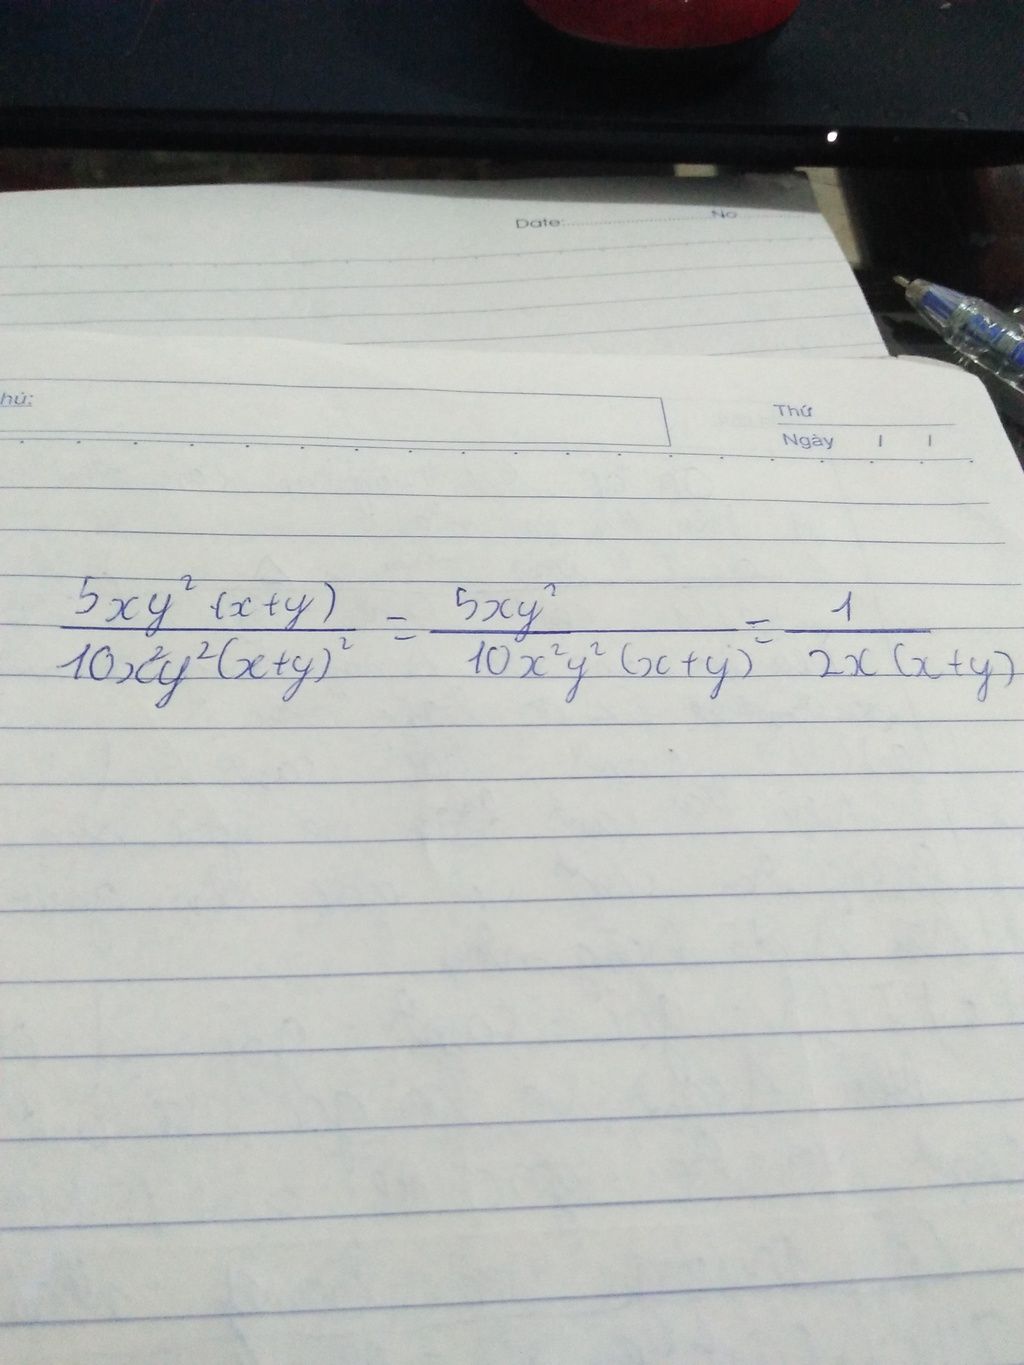 Date: No
hú:
Thứ
Ngày / /
5xy² (x+y) / 10x²y²(x+y)² = 5xy² / 10x²y² (x+y) = 1 / 2x (x+y)